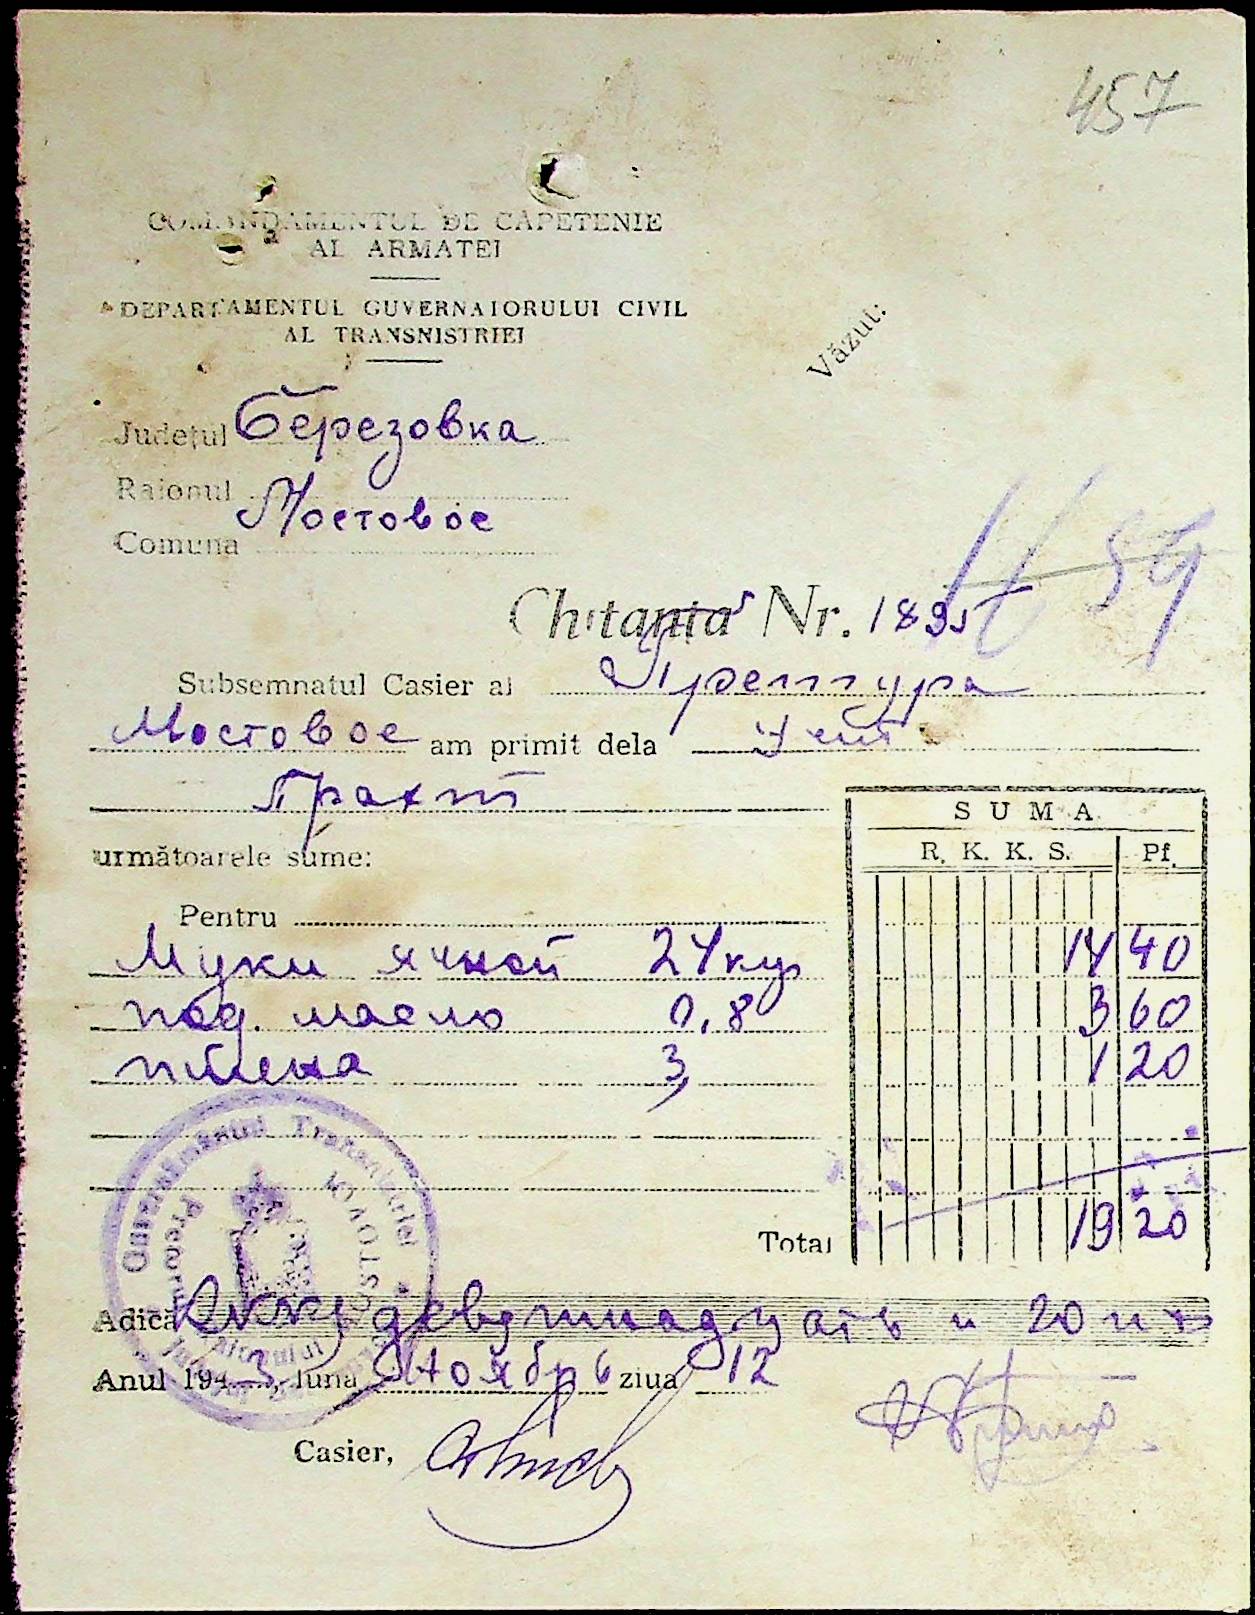 457
COMANDAMENTUL DE CAPETENIE
AL ARMATEI
DEPARTAMENTUL GUVERNATORULUI CIVIL
AL TRANSNISTRIEI
Văzut:
Județul Березовка
Raionul Мостовое
Comuna
59
Chitanța Nr. 1895
Subsemnatul Casier al Претура
Мостовое am primit dela
Трахт
următoarele sume:
SUMA
R. K. K. S. Pf.
Pentru
Муки ячной 24 кгр 14 40
под. масло 0,8 3 60
пшена 3, 1 20
Total 19 20
Guvernământul Transnistriei
Adică девятнадцать и 20 пф
Anul 1943, luna Ноябрь ziua 12
Casier,